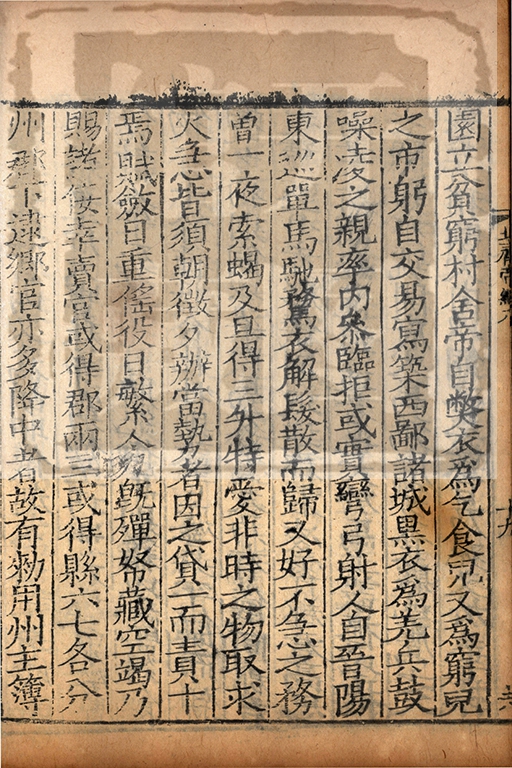 園立貧窮村舍帝自弊衣為乞食兒又為窮兒
之市躬自交易寫築西鄙諸城黒衣為羌兵鼓
噪凌之親率内叅臨拒或實彎弓射人自晉陽
東巡單馬馳騖衣解髮散而歸又好不急之務
曽一夜索蝎及旦得三升特愛非時之物取求
火急皆須朝徵夕辦當勢者因之貸一而責十
焉賦斂日重徭役日繁人力既殫帑藏空竭乃
賜諸佞幸賣官或得郡兩三或得縣六七各分
州郡下逮鄉官亦多降中者故有勑用州主簿